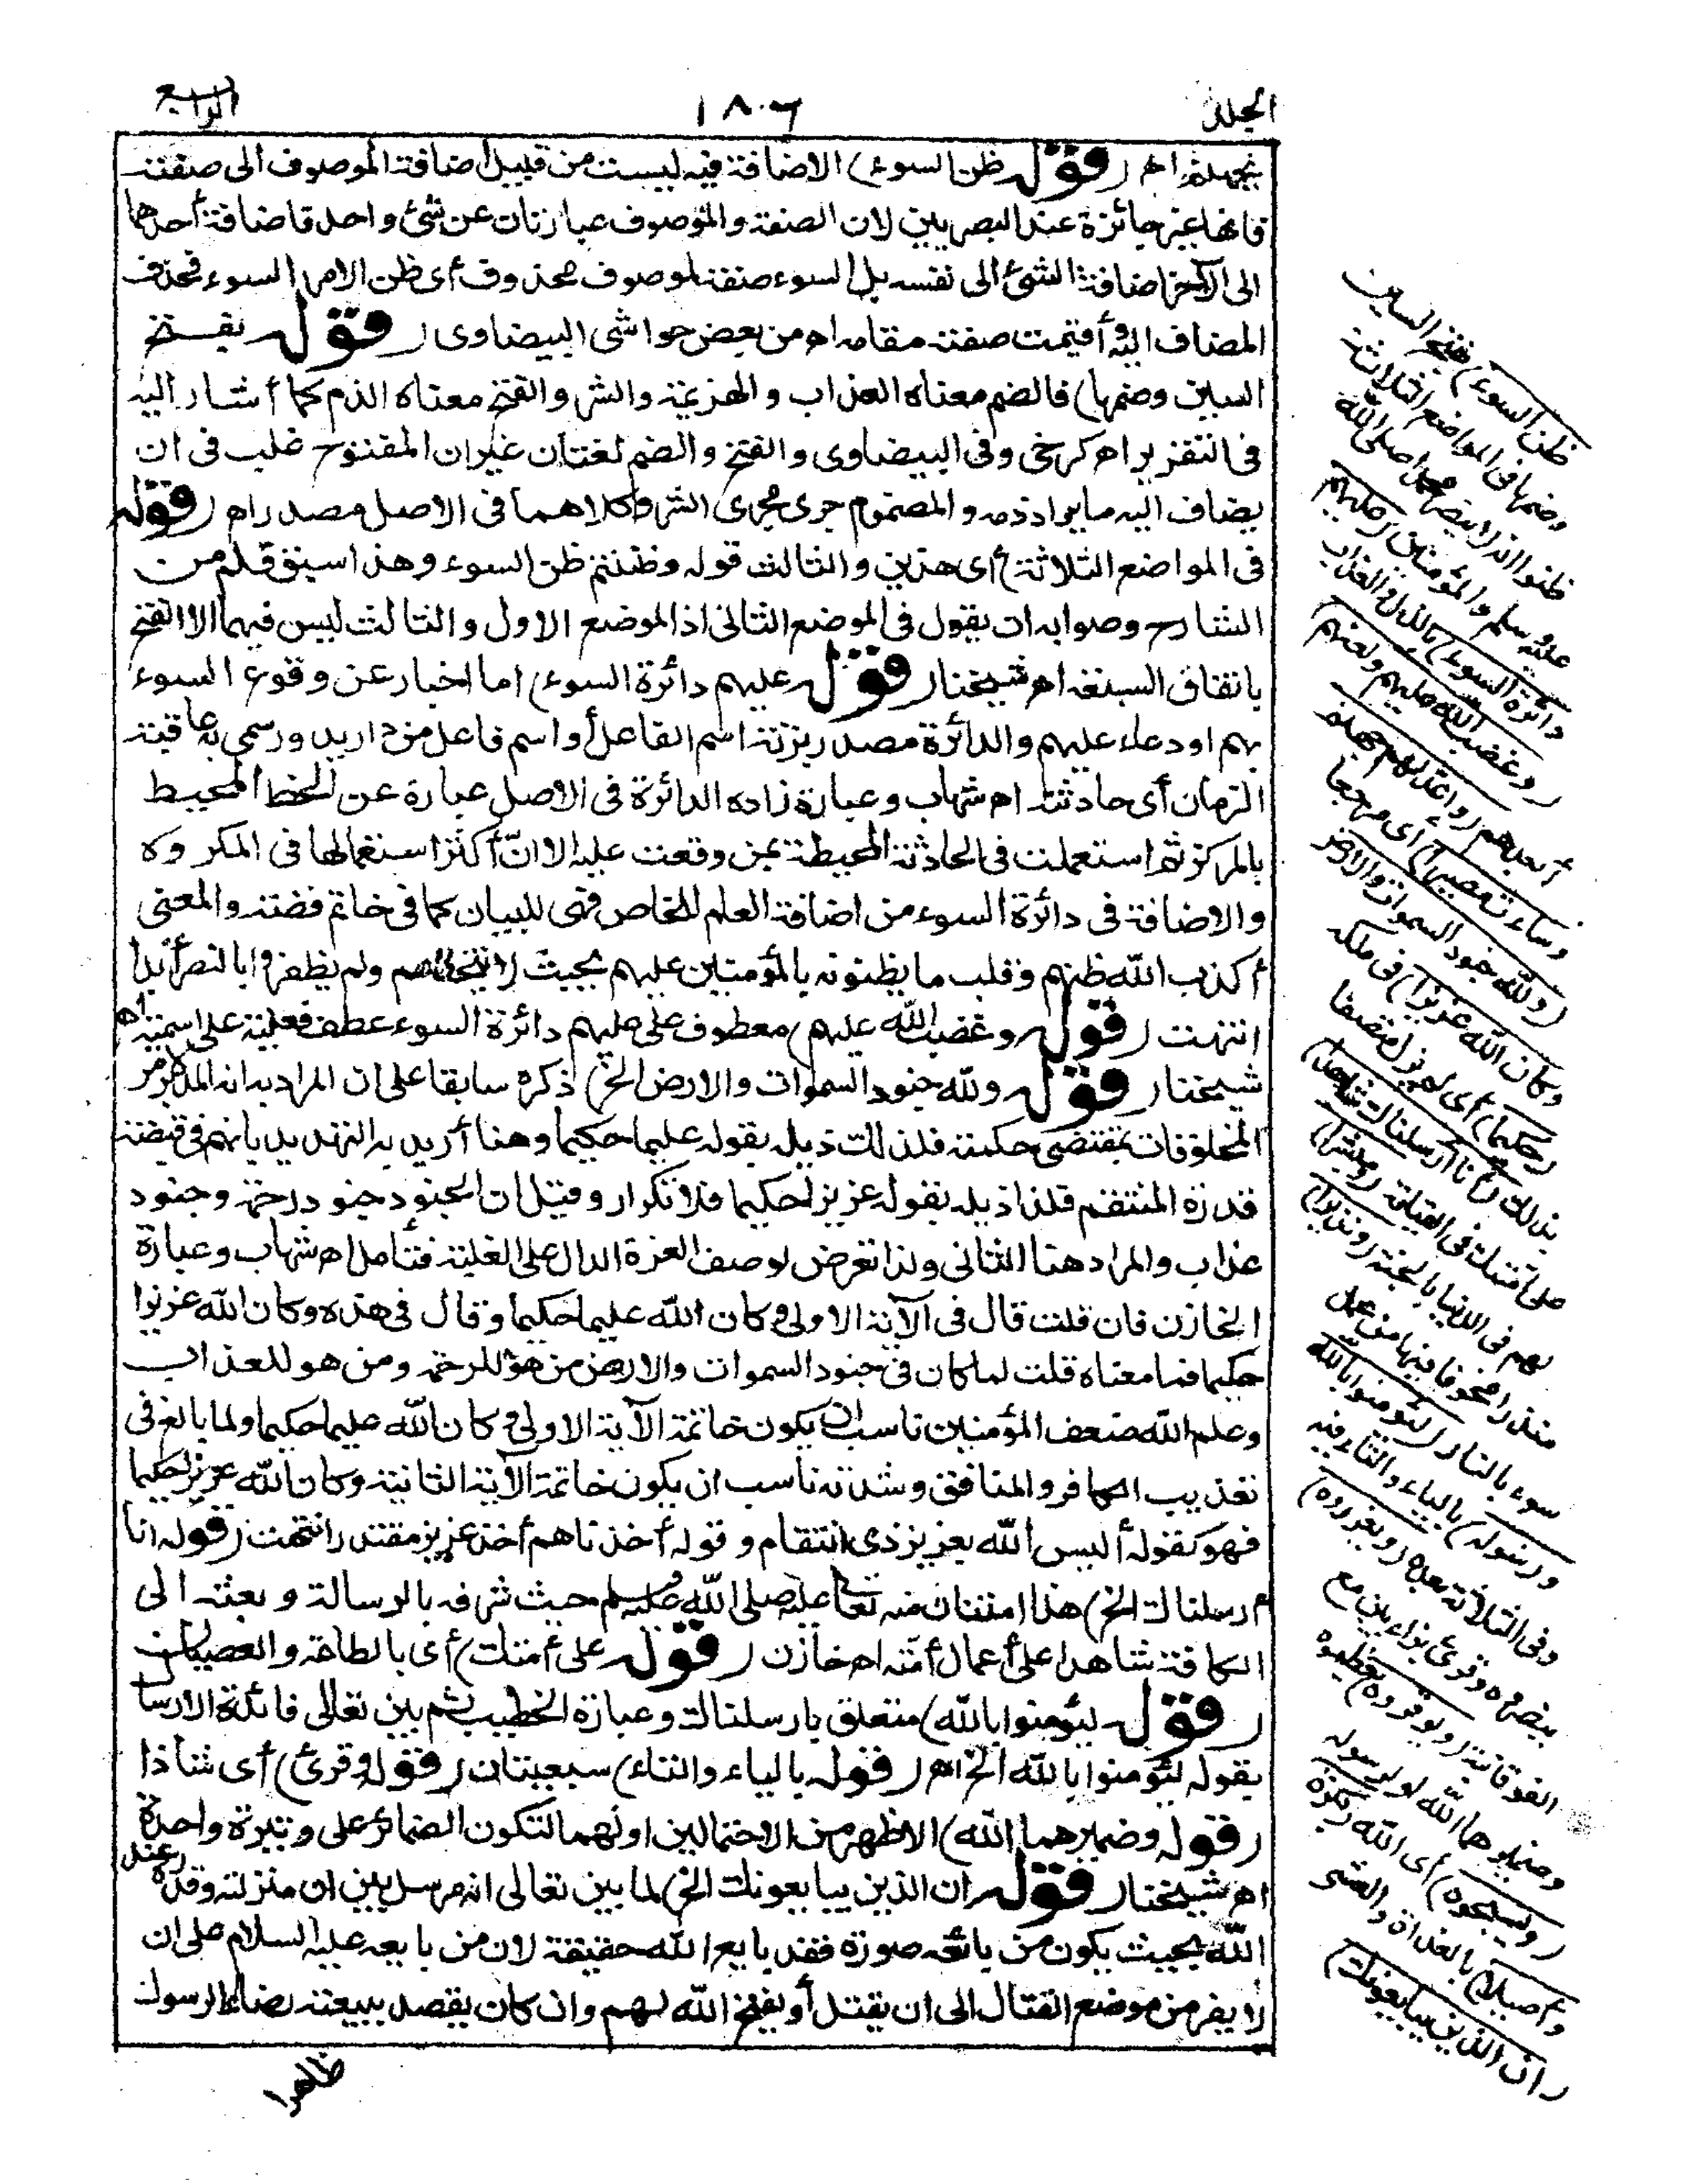 المجلد
١٨٠٦
الرابع
اه (قوله ظن السوء) الاضافة فيه ليست من قبيل اضافة الموصوف الى صفته
فانها غير جائزة عند البصريين لان الصفة والموصوف عبارتان عن شئ واحد فاضافة أحدها
الى الآخر اضافة الشئ الى نفسه بل السوء صفة لموصوف محذوف أى ظن الامر السوء فحذف
المضاف اليه وأقيمت صفته مقامه اه من بعض حواشى البيضاوى (قوله بفتح
السين وضمها) فالضم معناه العذاب والهزيمة والشر والفتح معناه الذم كما أشار اليه
فى التقرير اه كرخى وفى البيضاوى والفتح والضم لغتان غير ان المفتوح غلب فى ان
يضاف اليه ما يراد ذمه والمضموم جرى مجرى الشر وكلاهما فى الاصل مصدر اه (قوله
فى المواضع الثلاثة) أى هذين والثالث قوله وظننتم ظن السوء وهذا سبق قلم من
الشارح وصوابه ان يقول فى الموضع الثانى اذ الموضع الاول والثالث ليس فيهما الا الفتح
باتفاق السبعة اه شيخنا (قوله عليهم دائرة السوء) اما اخبار عن وقوع السوء
بهم او دعاء عليهم والدائرة مصدر بزنة اسم الفاعل أو اسم فاعل من دار يدور سمى به عاقبة
الزمان أى حادثته اه شهاب وعبارة زاده الدائرة فى الاصل عبارة عن الخط المحيط
بالمركز ثم استعملت فى الحادثة المحيطة بمن وقعت عليه الا ان أكثر استعمالها فى المكروه
والاضافة فى دائرة السوء من اضافة العام للخاص فهى للبيان كما فى خاتم فضة والمعنى
أكذب الله ظنهم وقلب ما يظنونه بالمؤمنين عليهم بحيث لا ولم يظفروا بالنصر أبدا
انتهت (قوله وغضب الله عليهم) معطوف على عليهم دائرة السوء عطف فعلية على اسمية اه
شيخنا (قوله ولله جنود السموات والارض الخ) ذكره سابقا على ان المراد به انه المدبر لامر
المخلوقات بمقتضى حكمته فلذلك ذيله بقوله عليما حكيما وهنا أريد به التهديد بانهم فى قبضة
قدرة المنتقم فلذا ذيله بقوله عزيزا حكيما فلا تكرار وقيل ان الجنود جنود رحمة وجنود
عذاب والمراد هنا الثانى ولذا تعرض لوصف العزة الدال على الغلبة فتأمل اه شهاب وعبارة
الخازن فان قلت قال فى الآية الاولى وكان الله عليما حكيما وقال فى هذه وكان الله عزيزا
حكيما فما معناه قلت لما كان فى جنود السموات والارض من هو للرحمة ومن هو للعذاب
وعلم الله ضعف المؤمنين ناسب ان يكون خاتمة الآية الاولى وكان الله عليما حكيما ولما بالغ فى
تعذيب الكافر والمنافق وشدته ناسب ان يكون خاتمة الآية الثانية وكان الله عزيزا حكيما
فهو كقوله أليس الله بعزيز ذى انتقام وقوله أخذناهم أخذ عزيز مقتدر انتهت (قوله انا
أرسلناك الخ) هذا امتنان منه تعالى عليه صلى الله عليه وسلم حيث شرفه بالرسالة وبعثه الى
الكافة شاهدا على أعمال أمته اه خازن (قوله على أمتك) أى بالطاعة والعصيان
(قوله ليؤمنوا بالله) متعلق بارسلناك وعبارة الخطيب ثم بين تعالى فائدة الارسال
بقوله لتؤمنوا بالله الخ اه (قوله بالياء والتاء) سبعيتان (قوله وقرئ) أى شاذا
(قوله وضميرهما لله) الاظهر من الاحتمالين اولهما لتكون الضمائر على وتيرة واحدة
اه شيخنا (قوله ان الذين يبايعونك الخ) لما بين تعالى انه مرسل بين ان منزلته وقدره عند
الله بحيث يكون من بايعه صورة فقد بايع الله حقيقة لان من بايعه عليه السلام على ان
لا يفر من موضع القتال الى ان يقتل أو يفتح الله لهم وان كان يقصد ببيعته رضاء الرسول
ظاهرا
ظن السوء) بفتح السين
وضمها فى المواضع الثلاثة
ظنوا انه لا ينصر محمدا صلى الله
عليه وسلم والمؤمنين (عليهم
دائرة السوء) بالذل والعذاب
(وغضب الله عليهم ولعنهم)
أبعدهم (وأعد لهم جهنم
وساءت مصيرا) أى مرجعا
(ولله جنود السموات والارض
وكان الله عزيزا) فى ملكه
(حكيما) أى لم يزل متصفا
بذلك (انا أرسلناك شاهدا)
على أمتك فى القيامة (ومبشرا)
لهم فى الدنيا بالجنة (ونذيرا)
منذرا مخوفا فيها من عمل
سوء بالنار (ليؤمنوا بالله
ورسوله) بالياء والتاء فيه
وفى الثلاثة بعده (ويعزروه)
ينصروه وقرئ بزاءين مع
الفوقانية (ويوقروه) يعظموه
وضميرهما لله او لرسوله
(ويسبحوه) أى الله (بكرة
وأصيلا) بالغداة والعشى
(ان الذين يبايعونك)